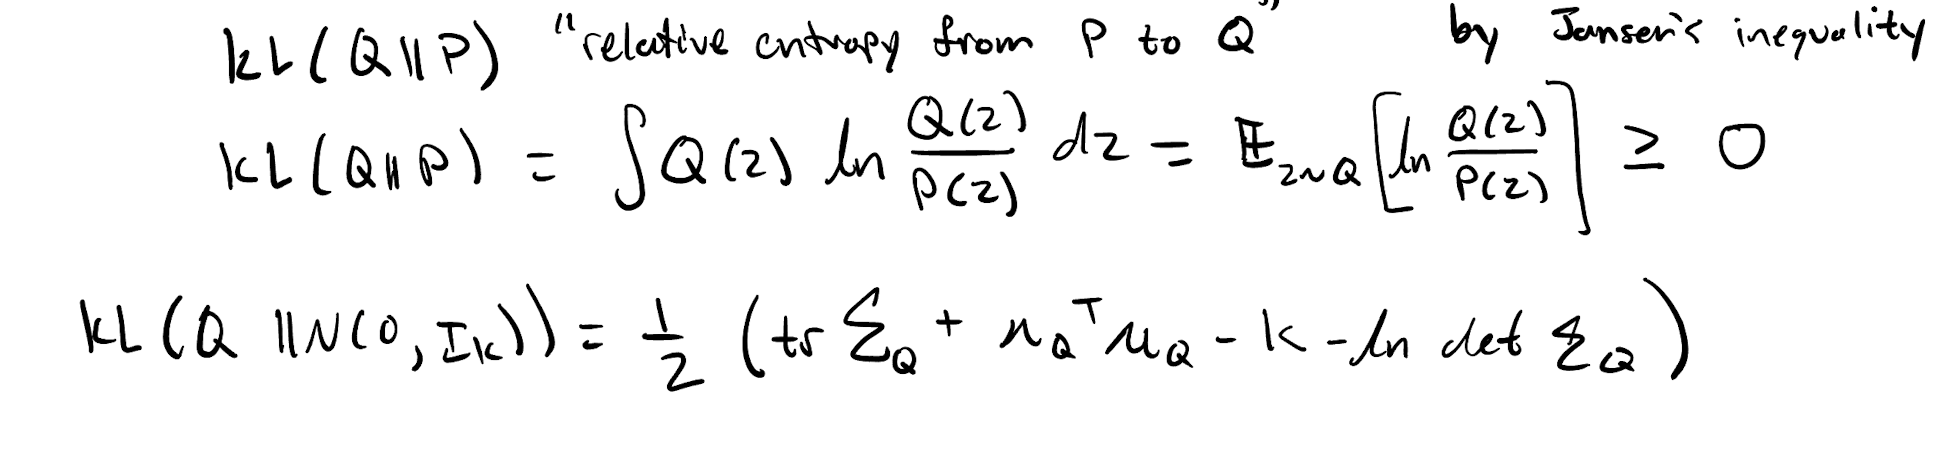 KL(Q||P) "relative entropy from P to Q" by Jensen's inequality
KL(Q||P) = ∫Q(z) ln Q(z)/P(z) dz = 𝔼_{z~Q}[ln Q(z)/P(z)] ≥ 0
KL(Q||N(0, I_k)) = 1/2 (tr Σ_Q + μ_Q^T μ_Q - k - ln det Σ_Q)